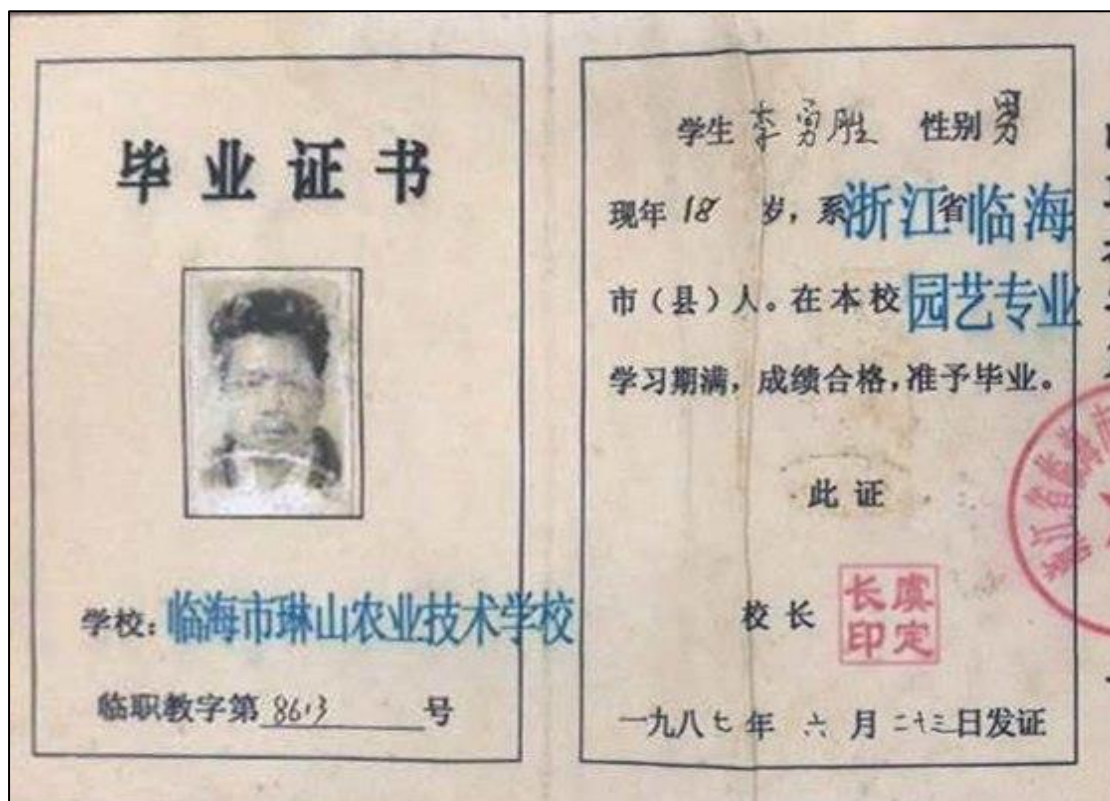 毕业证书
学校：临海市琳山农业技术学校
临职教字第8613号
学生 李勇胜 性别 男
现年 18 岁，系浙江省临海
市（县）人。在本校园艺专业
学习期满，成绩合格，准予毕业。
此证
校长 虞定长印
一九八七年六月二十三日发证
浙江省临海市